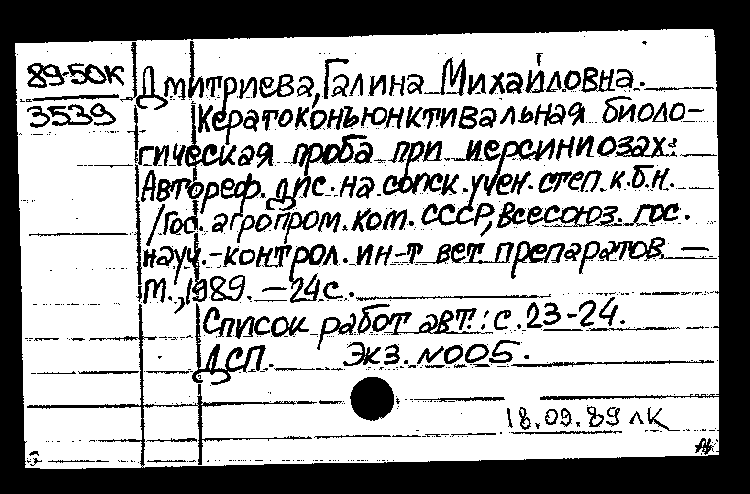 89-50К
3539
Дмитриева, Галина Михайловна.
Кератоконъюнктивальная биоло-
гическая проба при иерсиниозах:
Автореф. дис. на соиск. учен. степ. к.б.н.
/Гос. агропром. ком. СССР, Всесоюз. гос.
науч.-контрол. ин-т вет. препаратов. —
М., 1989. — 24с.
Список работ авт.: с. 23-24.
ДСП. Экз. №005.
18.09.89 лк